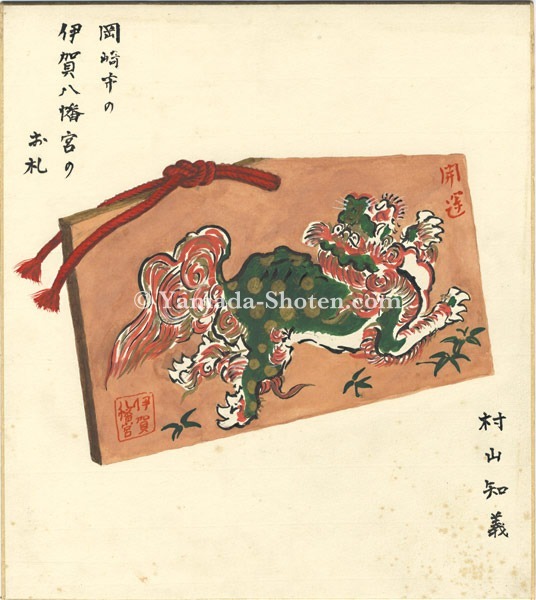 岡崎市の
伊賀八幡宮の
お札
開運
伊賀
八幡宮
村山知義
© Yamada-Shoten.com